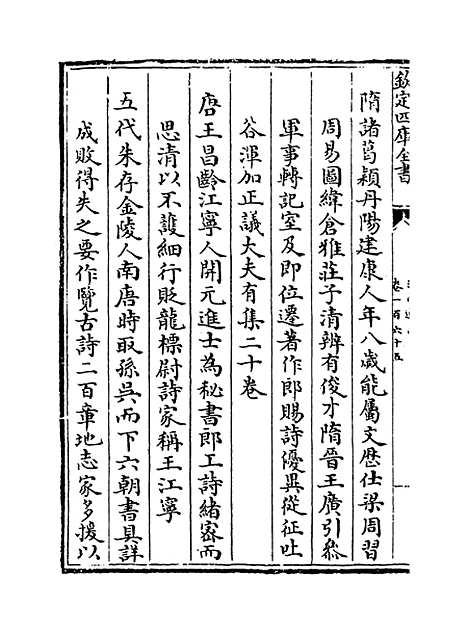 欽定四庫全書
卷一百六十五
隋諸葛潁丹陽建康人年八歲能屬文歷仕梁周習
周易圖緯倉雅莊子清辨有俊才隋晉王廣引叅
軍事轉記室及即位遷著作郎賜詩優異從征吐
谷渾加正議大夫有集二十卷
唐王昌齡江寧人開元進士為秘書郎工詩緒宻而
思清以不護細行貶龍標尉詩家稱王江寧
五代朱存金陵人南唐時取孫吳而下六朝書具詳
成敗得失之要作覽古詩二百章地志家多援以